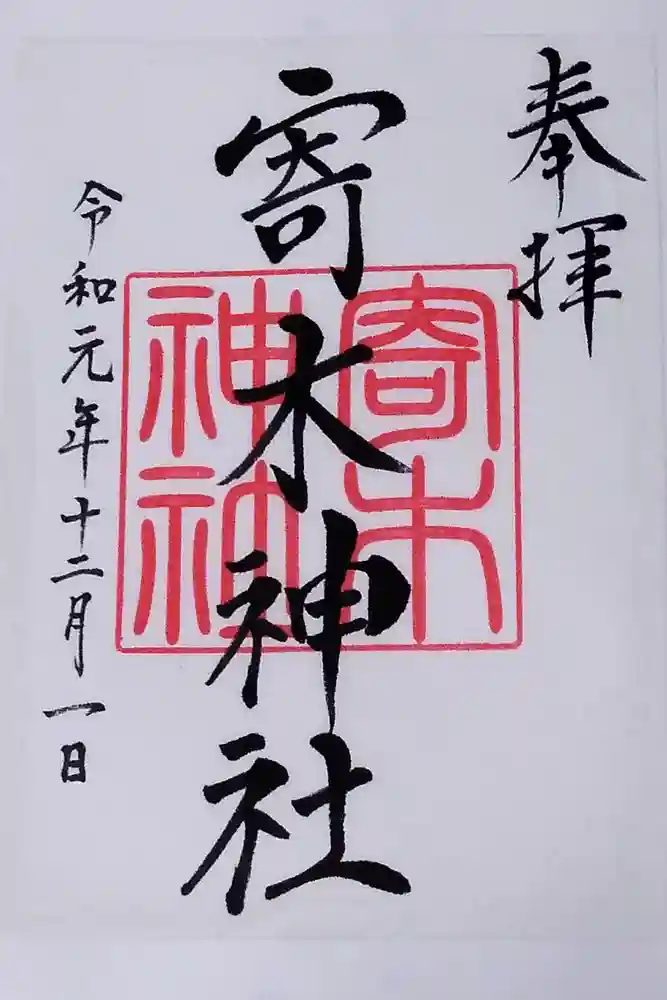 奉拝
寄木神社
寄木
神
令和元年十二月一日